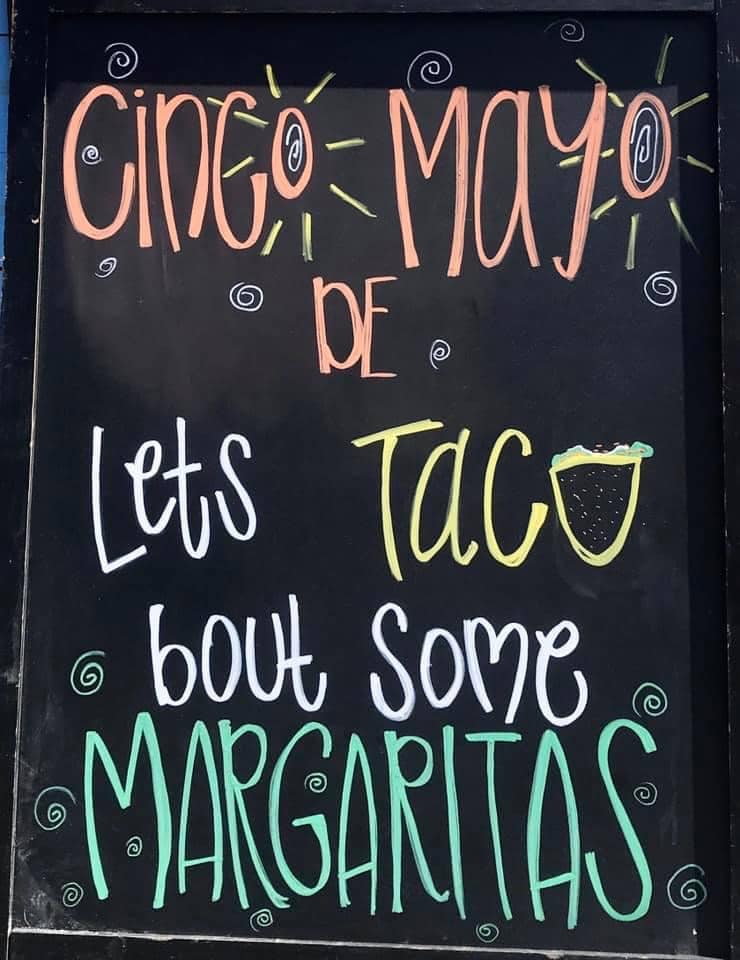 CINCO MAYO
DE
Lets TaCO
bout Some
MARGARITAS